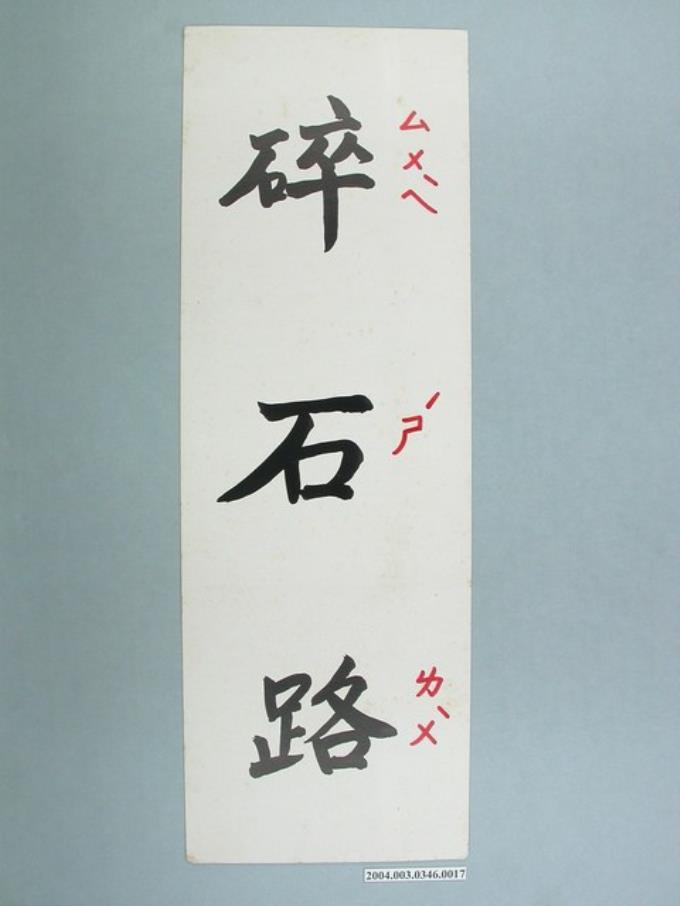 碎石路
ㄙㄨㄟˋ
ㄕˊ
ㄌㄨˋ
2004.003.0346.0017